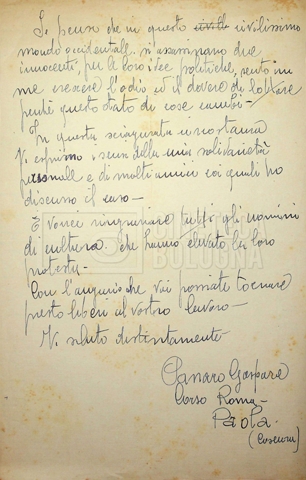 Se penso che in questo civilissimo
mondo occidentale si assassinano due
innocenti, per le loro idee politiche, sento in
me crescere l'odio ed il dovere di lottare
perché questo stato di cose cambi.
In questa circostanza
Vi esprimo i sensi della mia solidarietà
personale e di molti amici coi quali ho
discusso il caso.
E vorrei ringraziare tutti gli uomini
di cultura che hanno elevato la loro
protesta.
Con l'augurio che voi possiate tornare
presto liberi al vostro lavoro.
Vi saluto distintamente
Gaspare
Corso Roma
Paola
(Cosenza)
BOLOGNA